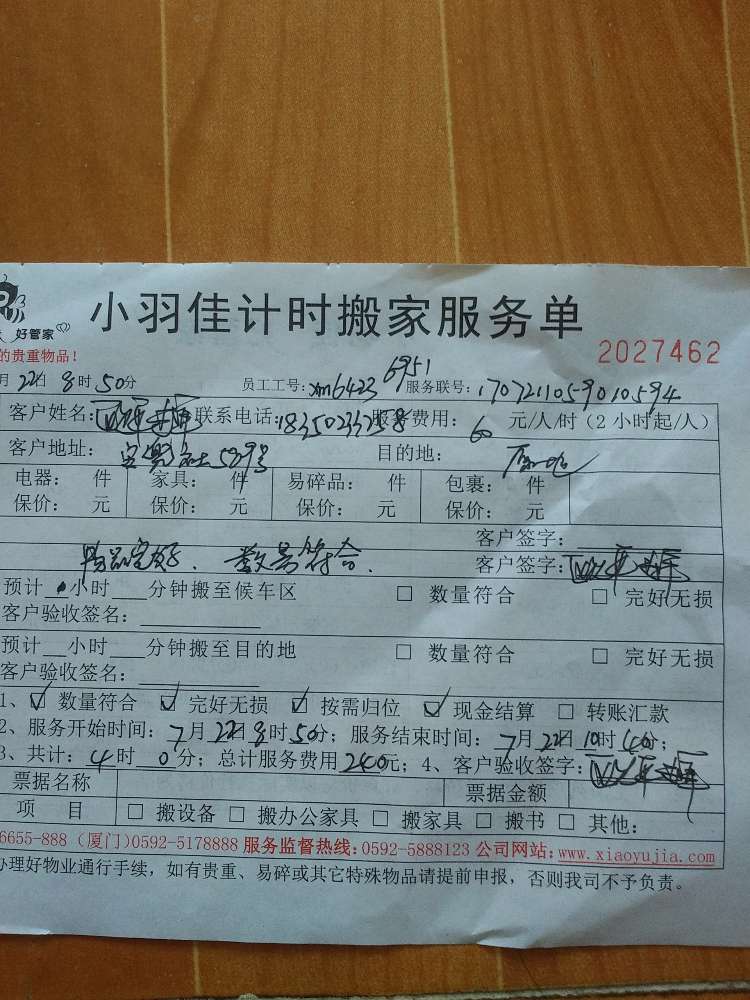 好管家
小羽佳计时搬家服务单
的贵重物品！
2027462
月 22日 8时 50分 员工工号：xm6423 6951 服务联号：1707211059010594
客户姓名： 联系电话： 服务费用：60 元/人/时（2小时起/人）
客户地址： 589号 目的地：
电器： 件 家具： 件 易碎品： 件 包裹： 件
保价： 元 保价： 元 保价： 元 保价： 元
客户签字：
物品完好．数量符合． 客户签字：
预计 小时 分钟搬至候车区 □ 数量符合 □ 完好无损
客户验收签名：
预计 小时 分钟搬至目的地 □ 数量符合 □ 完好无损
客户验收签名：
1、☑ 数量符合 ☑ 完好无损 ☑ 按需归位 ☑ 现金结算 □ 转账汇款
2、服务开始时间：7月22日8时50分；服务结束时间：7月22日10时40分；
3、共计：4时0分；总计服务费用240元；4、客户验收签字：
票据名称 票据金额
项 目 □ 搬设备 □ 搬办公家具 □ 搬家具 □ 搬书 □ 其他：
6655-888（厦门）0592-5178888 服务监督热线：0592-5888123 公司网站：www.xiaoyujia.com
办理好物业通行手续，如有贵重、易碎或其它特殊物品请提前申报，否则我司不予负责。